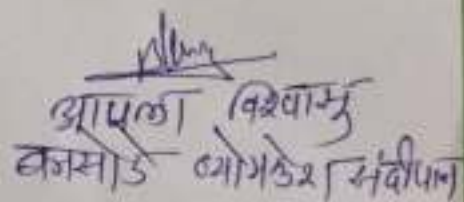 आपला विश्वासु
बनसोडे व्योमकेश संदीपान